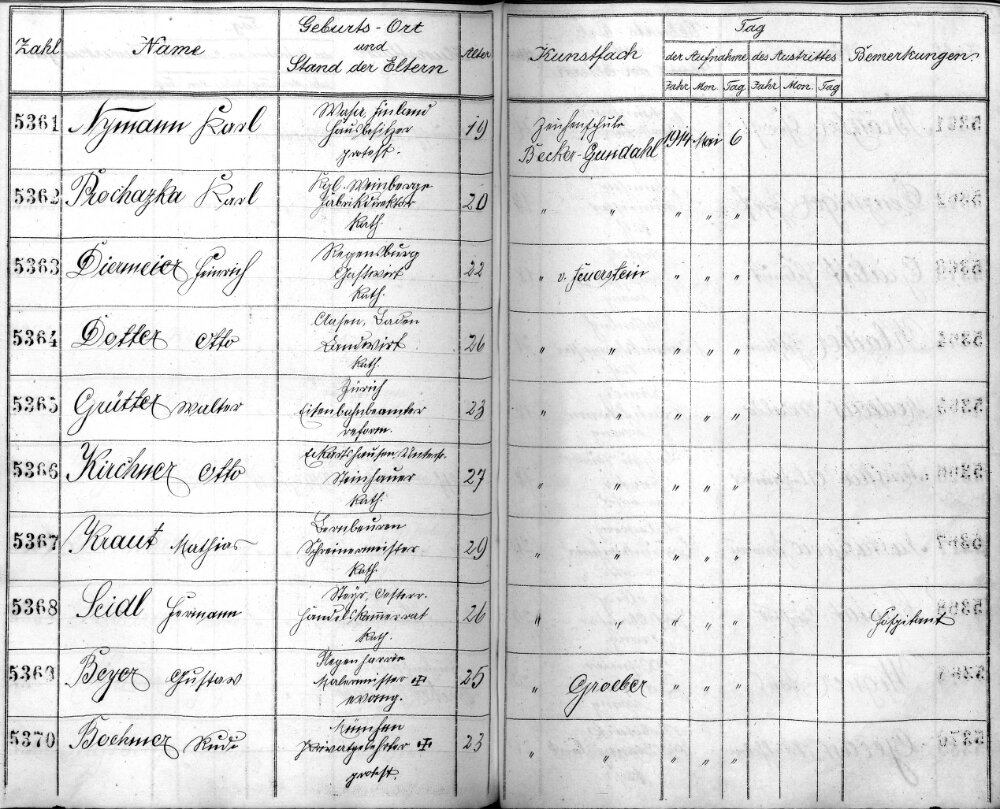 Zahl Name Geburts-Ort und Stand der Eltern Alter Kunstfach Tag der Aufnahme des Austrittes Bemerkungen
Jahr Mon. Tag Jahr Mon. Tag
5361 Nymann Karl Wasa Finland 19 Zeichenschule 1914 Mai 6
Hausbesitzer Becker-Gundahl
protest.
5362 Prochazka Karl Kgl. Weinberge 20 " " " " "
Fabrikdirektor
kath.
5363 Diermeier Heinrich Regensburg 22 " v. Feuerstein " " "
Gastwirt
kath.
5364 Dotter Otto Baden 26 " " " " "
Landwirt
kath.
5365 Grütter Walter Zürich 23 " " " " "
Eisenbahnbeamter
reform.
5366 Kirchner Otto Eckartshausen, Unterf. 27 " " " "
Steinhauer
kath.
5367 Kraut Mathias Bernbeuren 29 " " " "
Schreinermeister
kath.
5368 Seidl Hermann Steyr, Oesterr. 26 " " " " " Hospitant
Handelskammerrat
kath.
5369 Beyer Gustav 25 " Groeber " " "
Malermeister
evang.
5370 Bochmer Rudi München 23 " " " " "
Privatgelehrter
protest.